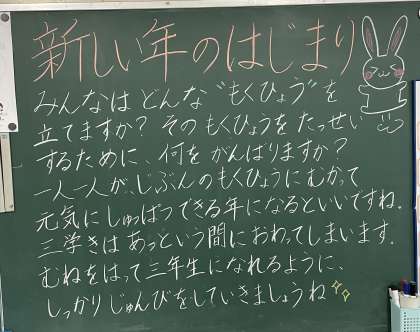 新しい年のはじまり
みんなはどんな"もくひょう"を
立てますか？そのもくひょうをたっせい
するために、何をがんばりますか？
一人一人が、じぶんのもくひょうにむかって
元気にしゅっぱつできる年になるといいですね。
三学きはあっという間におわってしまいます。
むねをはって三年生になれるように、
しっかりじゅんびをしていきましょうね